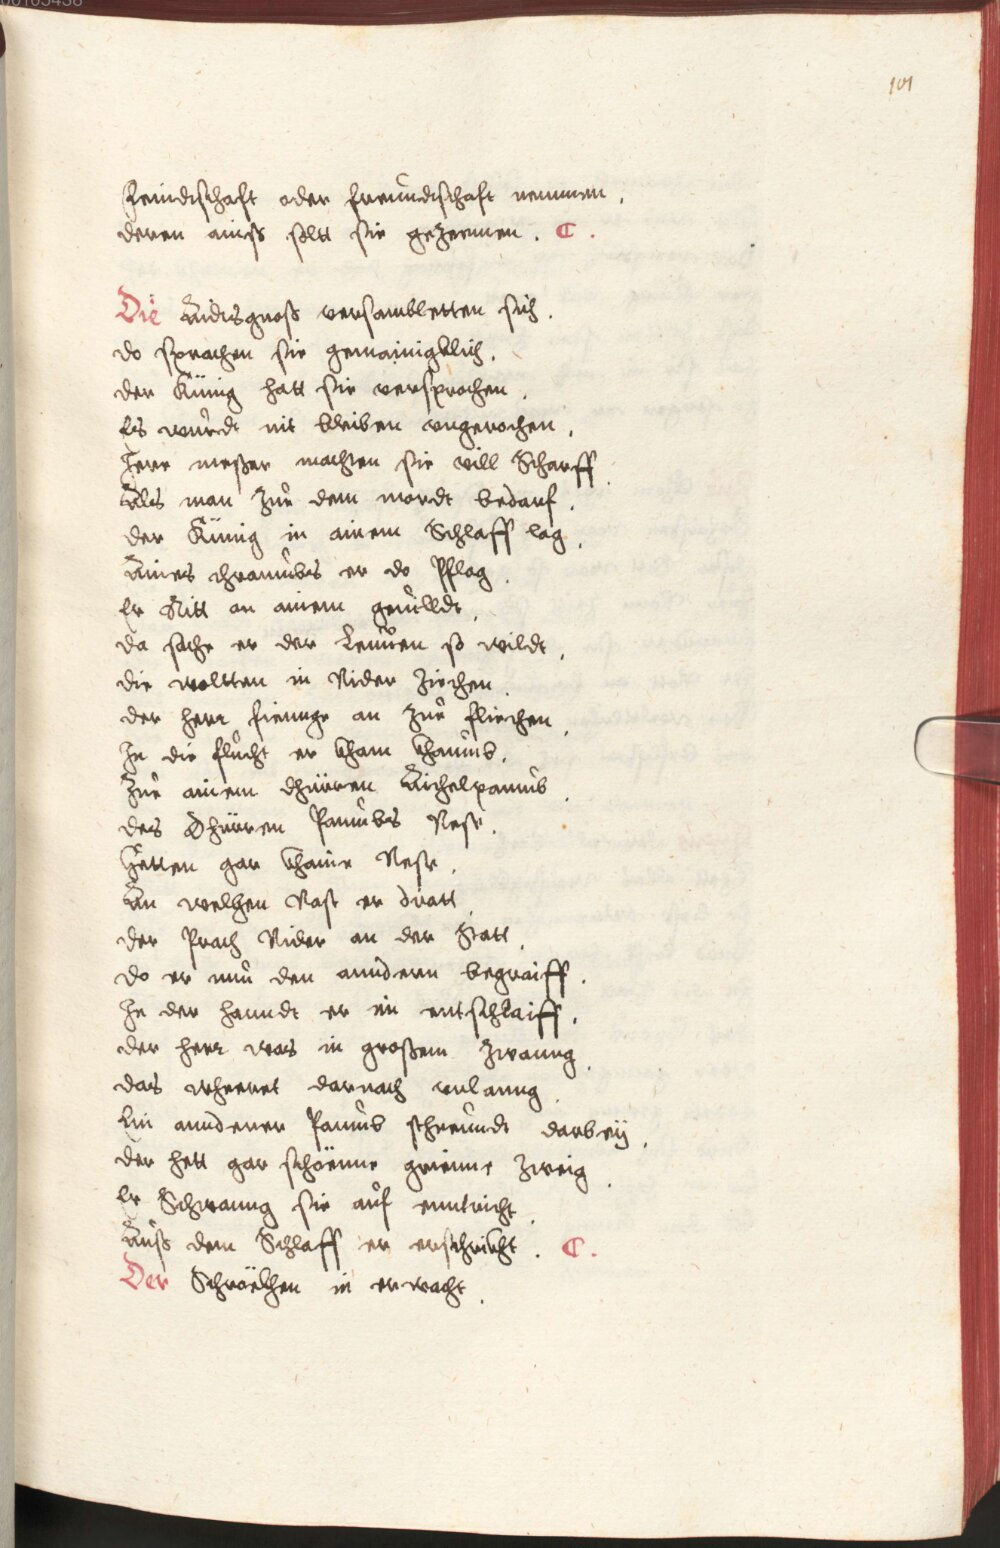 101
Feindtschaft oder freŭndtschaft nemmen.
deren ainss sŏltt sie gezemmen. C.
Die Aidtsgnoß versambletten sich.
do sprachen sie gemainigklich.
der Künig hatt sie versprochen.
Es wŭrdt nit bleiben vngerochen.
Jere meßer machten sie vill Scharff.
Alls man Zŭe dem mordt bedarf.
der Künig in ainem Schlaff lag.
Aines thraŭmbs er do Pflag.
Er Ritt an ainem gevilldt.
da sache er der Lewen so wildt.
die wolten in Nider Ziechen.
der herr fienge an Zŭe fliechen.
In die flŭcht er kham khaŭms.
Zŭe ainem dhürren Aichelpaŭmb.
des Dhürren Paŭmbs Nest.
Hetten gar khaine Nest.
An welhen Nast er dratt.
der Prach Nider an der Statt.
do er nŭn den anndern begraiff.
In der hanndt er im entschlaiff.
der herr was in großem Zwanng.
das wheret darnach vnlanng.
Ein annderer Paŭmb scheŭndt darbeÿ.
der hett gar schöenne grienne Zweig.
Er Schwanng sie aŭf enntricht.
Aŭß dem Schlaff er erschrickht. C.
Der Schröckhen in erwacht.